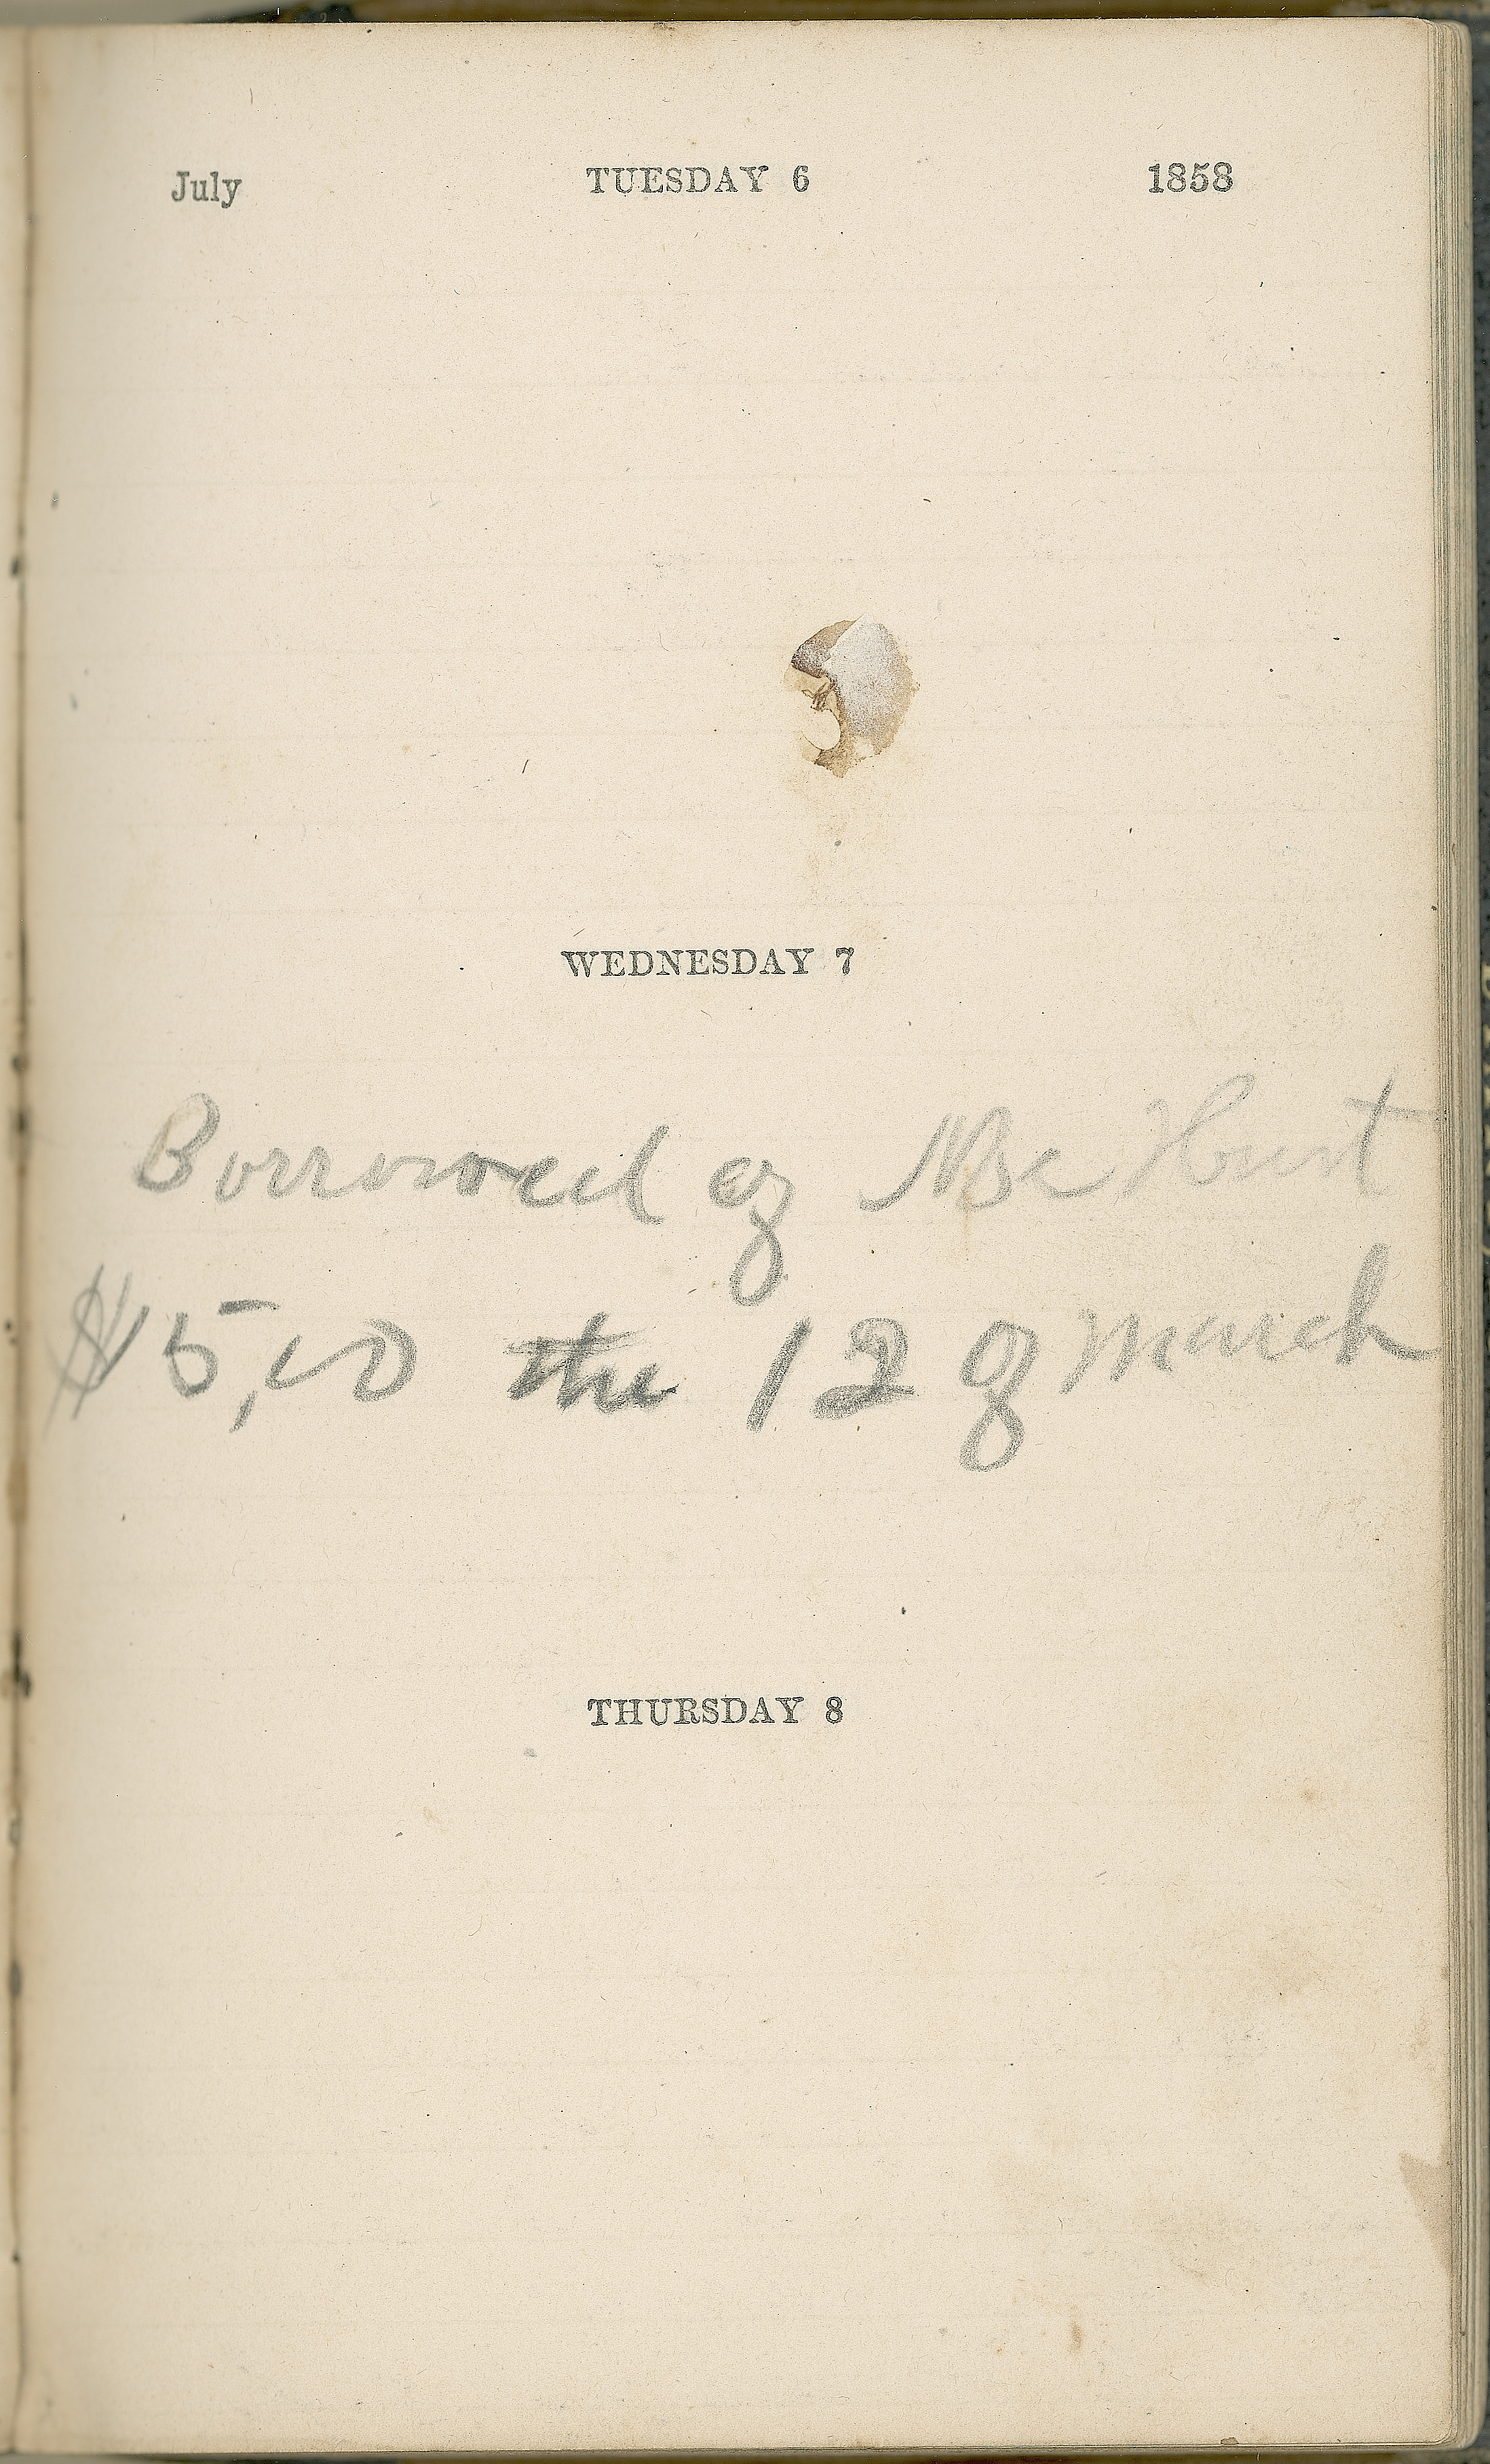 July TUESDAY 6 1858
WEDNESDAY 7
Borrowed of Hurt
$5,00 the 12 of march
THURSDAY 8